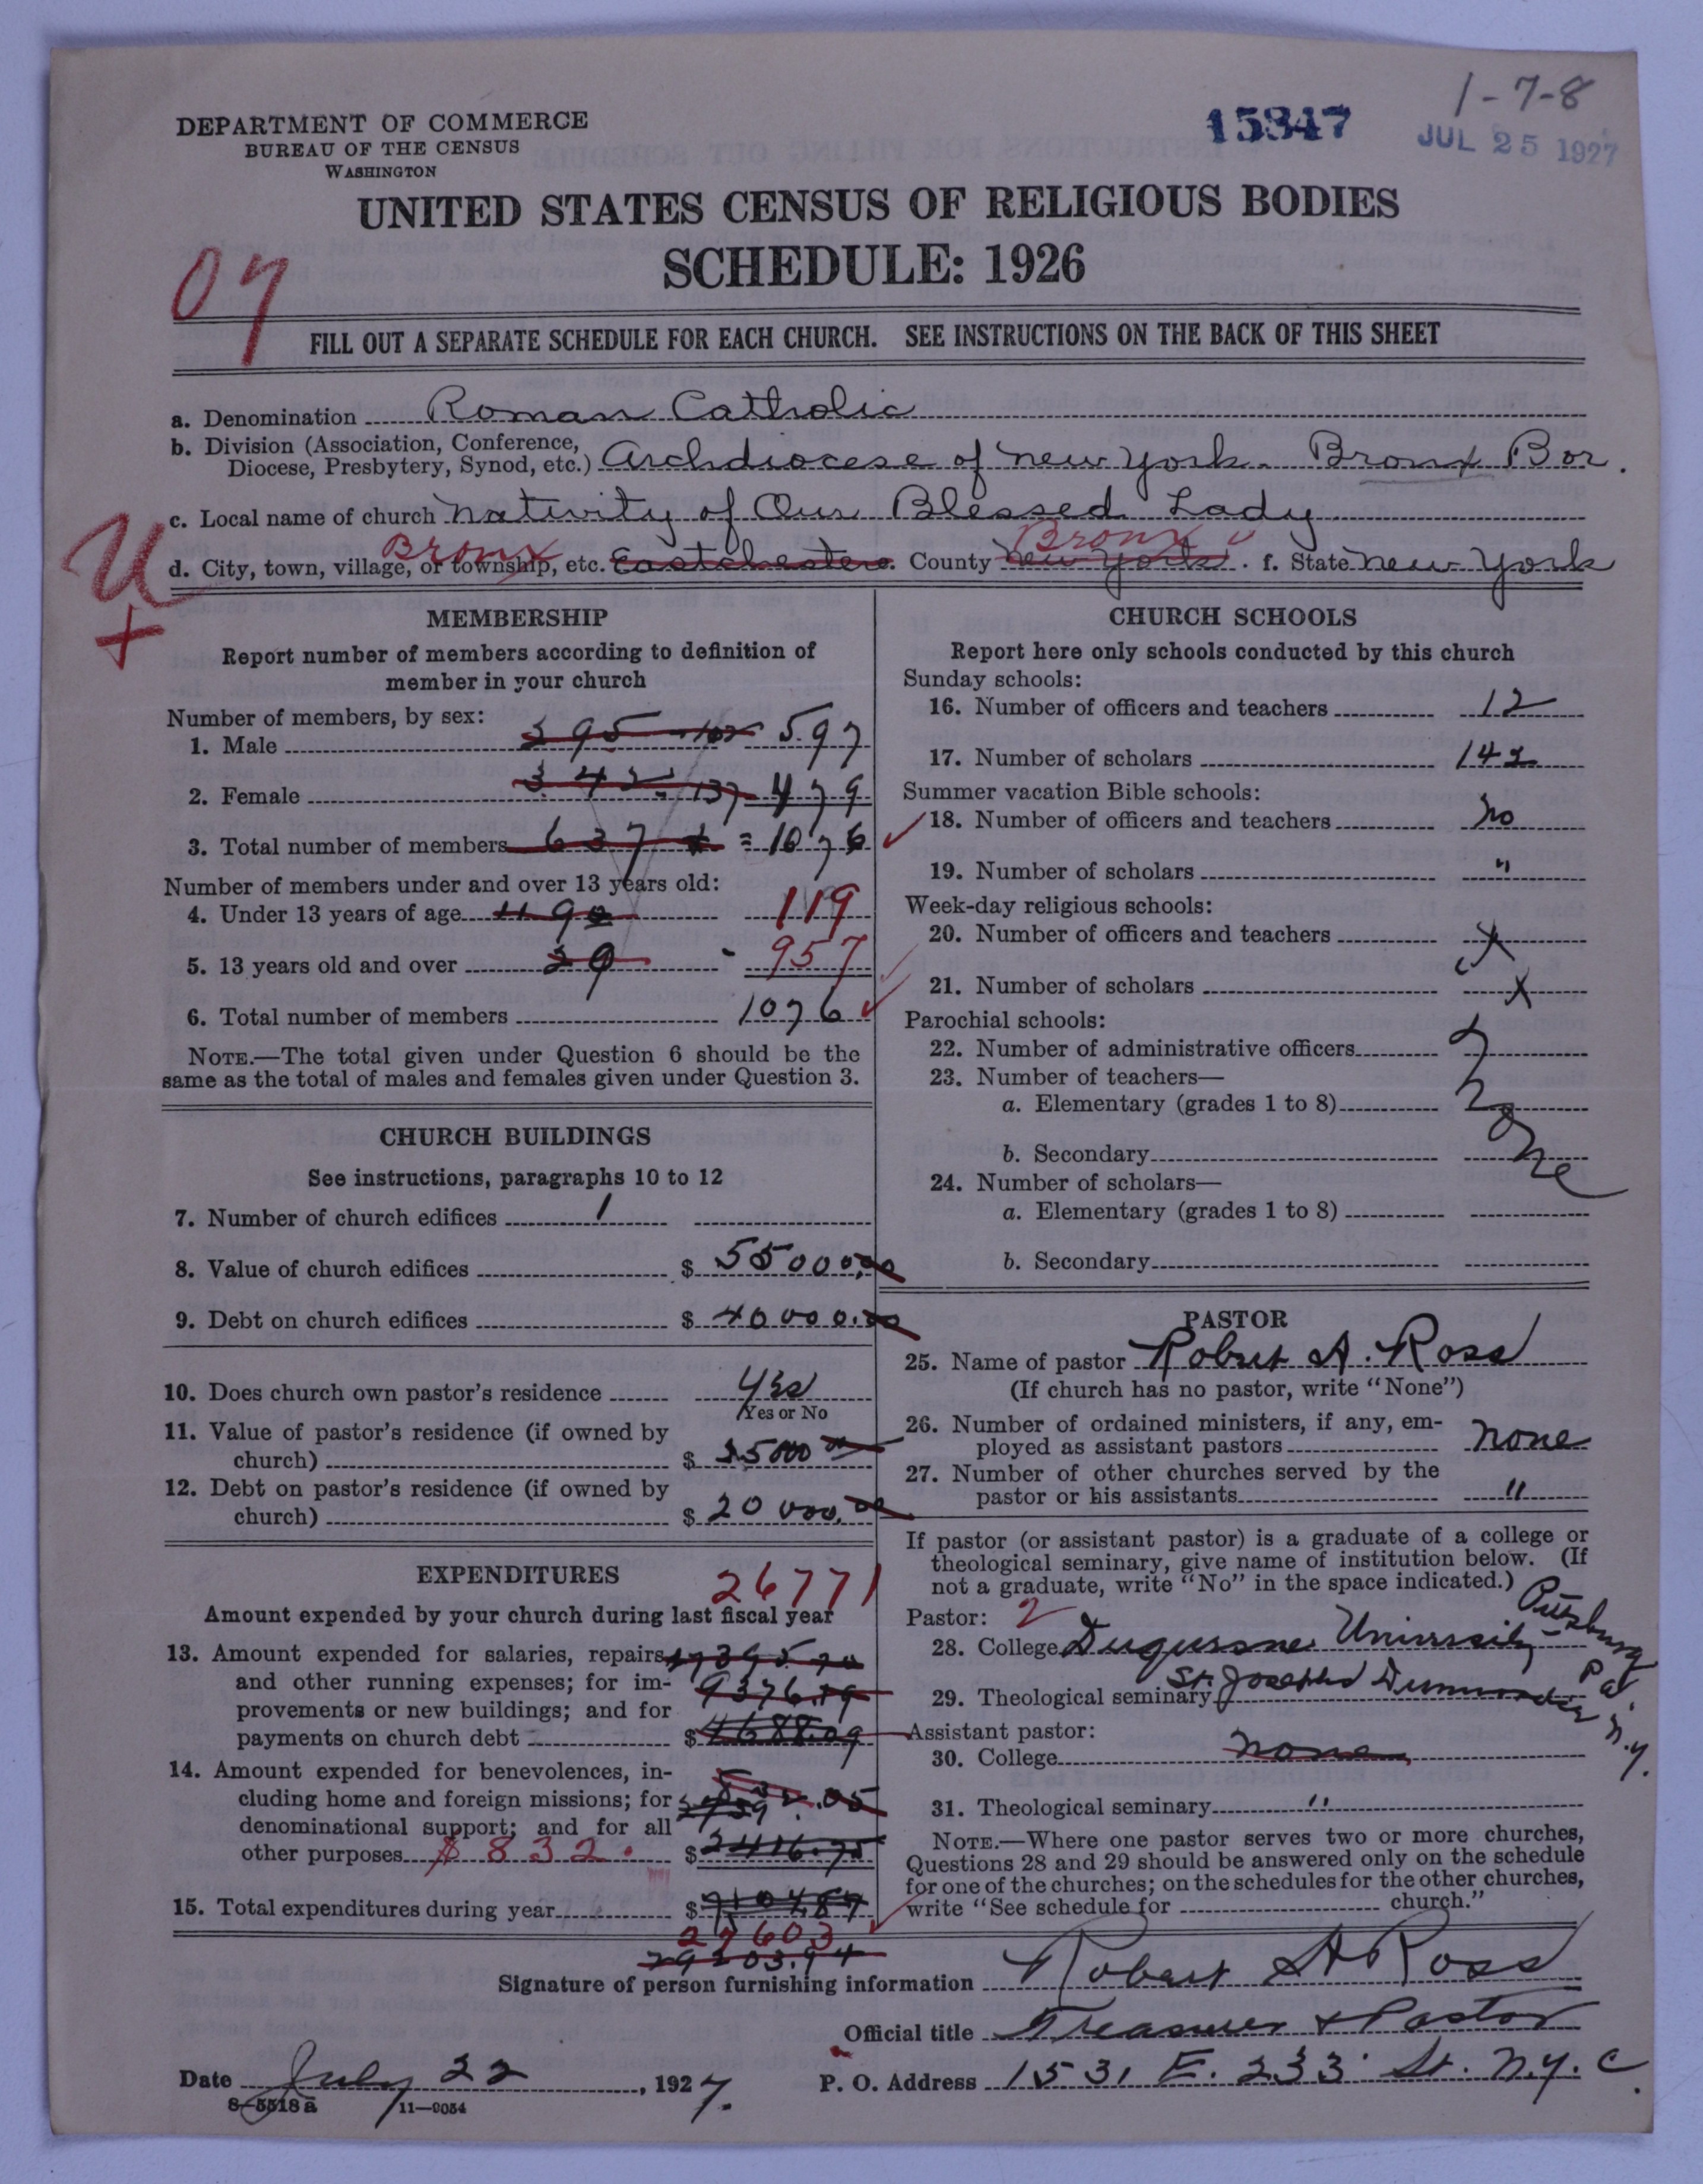 1-7-8
15347
JUL 25 1927
DEPARTMENT OF COMMERCE
BUREAU OF THE CENSUS
WASHINGTON
UNITED STATES CENSUS OF RELIGIOUS BODIES
SCHEDULE: 1926
07
FILL OUT A SEPARATE SCHEDULE FOR EACH CHURCH. SEE INSTRUCTIONS ON THE BACK OF THIS SHEET
a. Denomination Roman Catholic
b. Division (Association, Conference,
Diocese, Presbytery, Synod, etc.) Archdiocese of New York. Bronx Bor.
c. Local name of church Nativity of Our Blessed Lady
U
+
Bronx Bronx
d. City, town, village, or township, etc. Eastchester. County New York. f. State New York
MEMBERSHIP
Report number of members according to definition of
member in your church
Number of members, by sex:
1. Male 395 102 597
2. Female 342 137 479
3. Total number of members 637 = 1076
Number of members under and over 13 years old:
4. Under 13 years of age 119
5. 13 years old and over 957
6. Total number of members 1076
NOTE.—The total given under Question 6 should be the
same as the total of males and females given under Question 3.
CHURCH BUILDINGS
See instructions, paragraphs 10 to 12
7. Number of church edifices 1
8. Value of church edifices $ 55000.00
9. Debt on church edifices $ 40000.00
10. Does church own pastor's residence Yes
Yes or No
11. Value of pastor's residence (if owned by
church) $ 35000 00
12. Debt on pastor's residence (if owned by
church) $ 20000.00
EXPENDITURES
26771
Amount expended by your church during last fiscal year
13. Amount expended for salaries, repairs 17395 70
and other running expenses; for im- 9376.19
provements or new buildings; and for
payments on church debt $ 4688.09
14. Amount expended for benevolences, in-
cluding home and foreign missions; for
denominational support; and for all
other purposes $832. $ 2416.75
15. Total expenditures during year $
27603
29203.94
CHURCH SCHOOLS
Report here only schools conducted by this church
Sunday schools:
16. Number of officers and teachers 12
17. Number of scholars 142
Summer vacation Bible schools:
18. Number of officers and teachers No
19. Number of scholars "
Week-day religious schools:
20. Number of officers and teachers x
21. Number of scholars x
Parochial schools:
22. Number of administrative officers
23. Number of teachers—
a. Elementary (grades 1 to 8)
b. Secondary
24. Number of scholars—
a. Elementary (grades 1 to 8)
b. Secondary
PASTOR
25. Name of pastor Robert A. Ross
(If church has no pastor, write "None")
26. Number of ordained ministers, if any, em-
ployed as assistant pastors none
27. Number of other churches served by the
pastor or his assistants "
If pastor (or assistant pastor) is a graduate of a college or
theological seminary, give name of institution below. (If
not a graduate, write "No" in the space indicated.)
Pastor: 2
28. College Duquesne University Pittsburg Pa.
29. Theological seminary St. Joseph's Dunwoodie N.Y.
Assistant pastor:
30. College none
31. Theological seminary "
NOTE.—Where one pastor serves two or more churches,
Questions 28 and 29 should be answered only on the schedule
for one of the churches; on the schedules for the other churches,
write "See schedule for church."
Signature of person furnishing information Robert A Ross
Official title Treasurer & Pastor
Date July 22, 1927. P. O. Address 1531 E. 233 St. N.Y. C.
8-5518a 11—9054